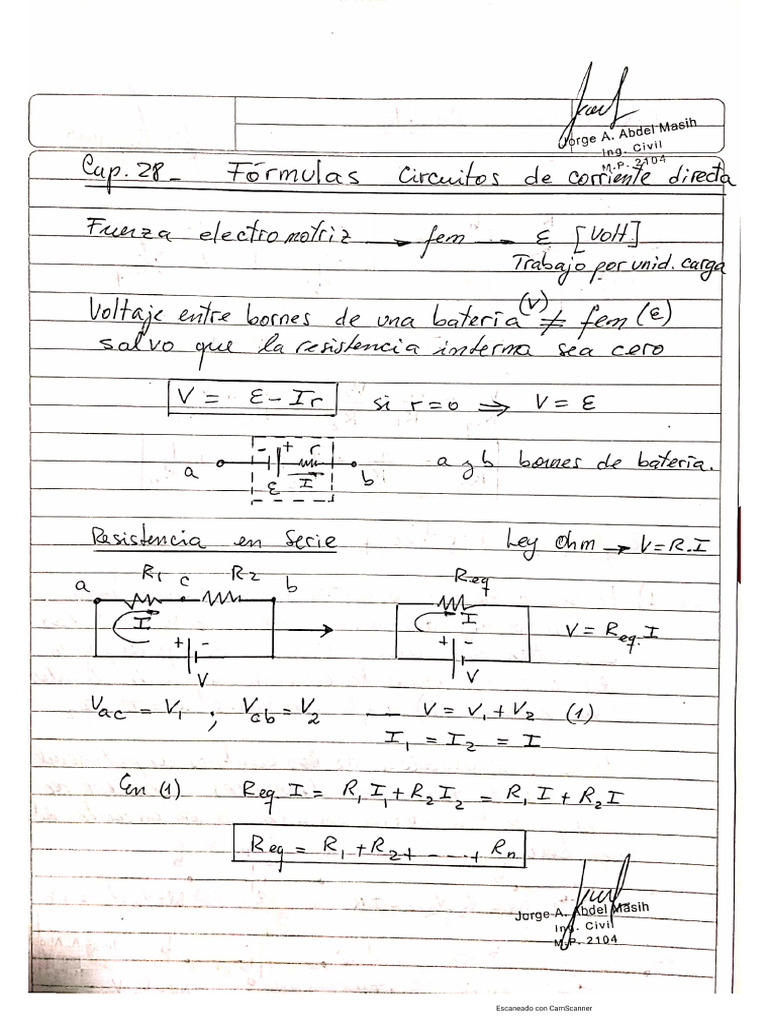 Jorge A. Abdel Masih
Ing. Civil
M.P. 2104
Cap. 28 - Fórmulas Circuitos de corriente directa
Fuerza electromotriz → fem → ε [Volt.]
Trabajo por unid. carga
Voltaje entre bornes de una batería (V) ≠ fem (ε)
salvo que la resistencia interna sea cero
V = ε - Ir si r=0 ⇒ V = ε
- + r
a ε I b a y b bornes de batería.
Resistencia en Serie Ley Ohm → V=R.I
a R1 c R2 b Req
I I
+ - + - V = Req. I
V V
Vac = V1 ; Vcb = V2 — V = V1 + V2 (1)
I1 = I2 = I
En (1) Req. I = R1 I1 + R2 I2 = R1 I + R2 I
Req = R1 + R2 + - - - - + Rn
Jorge A. Abdel Masih
Ing. Civil
M.P. 2104
Escaneado con CamScanner